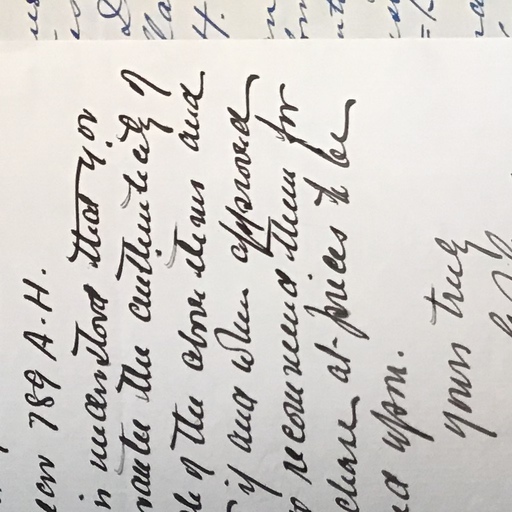 789 A.H.
is understood that you
the authenticity of
of the above items and
if and when approved
recommend them for
chase at prices to be
upon.
yours truly